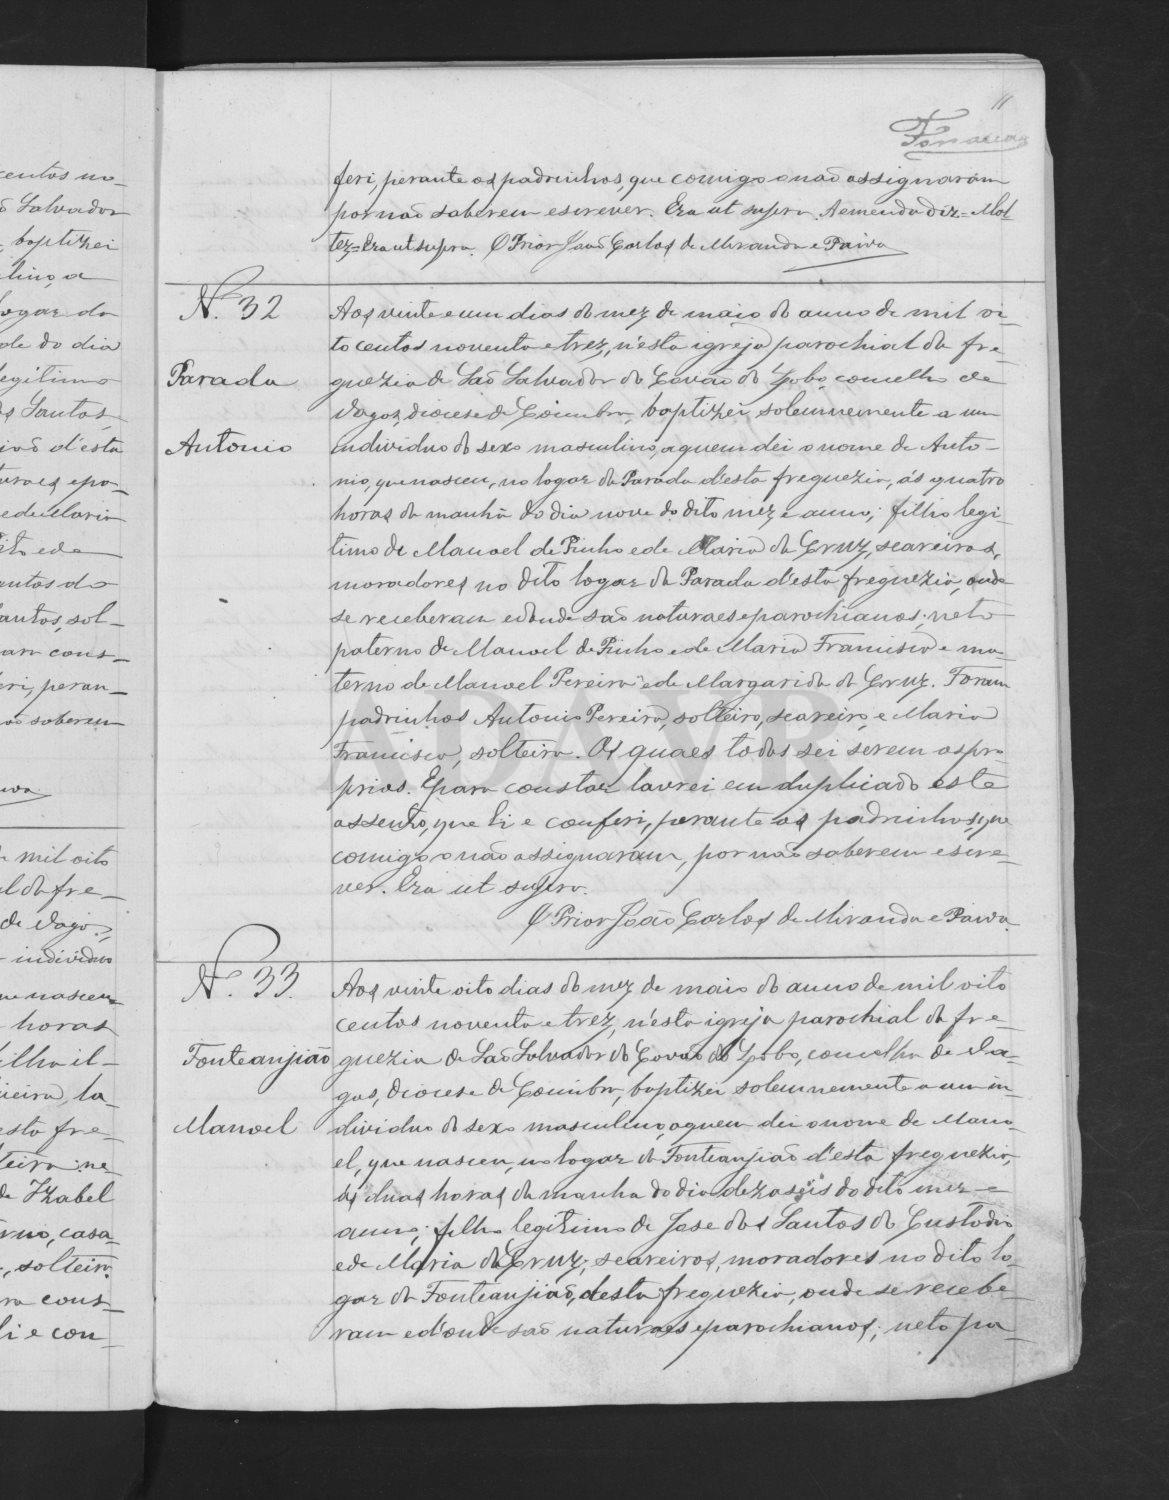 11
Fonseca
feri, perante os padrinhos, que comigo o não assignaram
por não saberem escrever. Era ut supra. A emenda diz = Mol
tez = Era ut supra. O Prior João Carlos de Miranda e Paiva
N. 32
Parada
Antonio
Aos vinte e um dias do mez de maio do anno de mil oi-
to centos noventa e trez, n'esta igreja parochial da fre-
guezia de São Salvador do Covão do Lobo, concelho de
Vagos, diocese de Coimbra, baptizei solemnemente a um
individuo do sexo masculino, a quem dei o nome de Anto-
nio, que nasceu, no logar da Parada d'esta freguezia, ás quatro
horas da manhã do dia nove do dito mez e anno; filho legi-
timo de Manoel de Pinho e de Maria da Cruz, seareiros,
moradores no dito logar da Parada d'esta freguezia, onde
se receberam e donde são naturaes e parochianos; neto
paterno de Manoel de Pinho e de Maria Francisca e ma-
terno de Manoel Pereira e de Margarida da Cruz. Foram
padrinhos Antonio Pereira, solteiro, seareiro, e Maria
Francisca, solteira. Os quaes todos sei serem os pro-
prios. E para constar lavrei em duplicado este
assento, que li e conferi, perante os padrinhos, que
comigo o não assignaram, por não saberem escre-
ver. Era ut supra.
O Prior João Carlos de Miranda e Paiva.
N. 33.
Fonteanjião
Manoel
Aos vinte oito dias do mez de maio do anno de mil oito
centos noventa e trez, n'esta igreja parochial da fre-
guezia de São Salvador do Covão do Lobo, concelho de Va-
gos, diocese de Coimbra, baptizei solemnemente a um in-
dividuo do sexo masculino, a quem dei o nome de Mano-
el, que nasceu, no logar da Fonteanjião d'esta freguezia,
ás duas horas da manhã do dia dezaseis do dito mez e
anno; filho legitimo de José dos Santos do Custodio
e de Maria da Cruz, seareiros, moradores no dito lo-
gar da Fonteanjião, desta freguezia, onde se recebe-
ram e d'onde são naturaes e parochianos; neto pa-
centos no-
Salvador
baptizei
logar da
de do dia
legitimo
Santos,
d'esta
Maria
santos, sol-
para cons-
feri, peran-
não saberem
mil oito
da fre-
de Vagos,
individuo
que nasceu
horas
filha il-
esta fre-
solteira; ne-
de Izabel
casa-
solteiro.
para cons-
li e con-
ADAVR